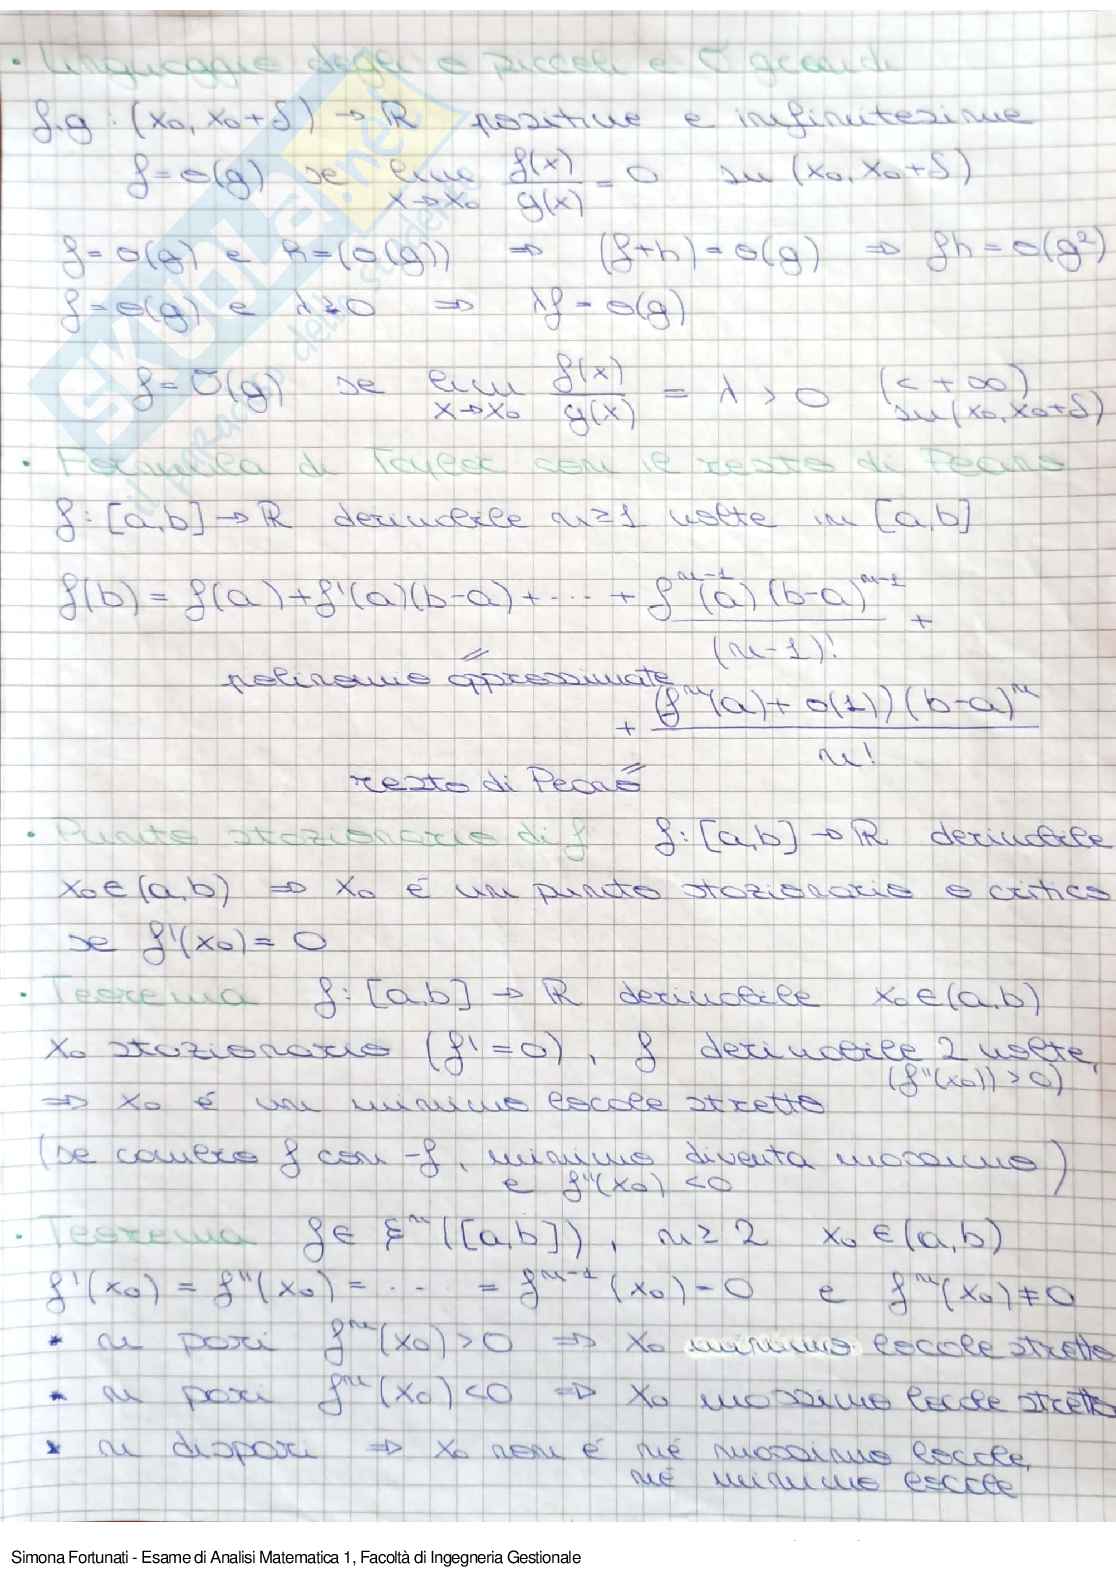 • Linguaggio degli o piccoli e O grandi
f, g : (x₀, x₀+δ) → ℝ positive e infinitesime
f = o(g) se lim x→x₀ f(x)/g(x) = 0 su (x₀, x₀+δ)
f = o(g) e h = (o(g)) ⇒ (f+h) = o(g) ⇒ fh = o(g²)
f = o(g) e λ ≥ 0 ⇒ λf = o(g)
f = O(g) se lim x→x₀ f(x)/g(x) = λ > 0 (< +∞) su (x₀, x₀+δ)
• Formula di Taylor con il resto di Peano
f : [a,b] → ℝ derivabile n≥1 volte in [a,b]
f(b) = f(a) + f'(a)(b-a) + ··· + fⁿ⁻¹(a)(b-a)ⁿ⁻¹/(n-1)! +
polinomio approssimate
+ (fⁿ(a) + o(1))(b-a)ⁿ/n!
resto di Peano
• Punto stazionario di f f : [a,b] → ℝ derivabile
x₀ ∈ (a,b) ⇒ x₀ è un punto stazionario o critico
se f'(x₀) = 0
• Teorema f : [a,b] → ℝ derivabile x₀ ∈ (a,b)
x₀ stazionario (f' = 0), f derivabile 2 volte,
(f''(x₀)) > 0)
⇒ x₀ è un minimo locale stretto
(se cambio f con -f, minimo diventa massimo)
e f''(x₀) < 0
• Teorema f ∈ ξⁿ([a,b]), n ≥ 2 x₀ ∈ (a,b)
f'(x₀) = f''(x₀) = ··· = fⁿ⁻¹(x₀) = 0 e fⁿ(x₀) ≠ 0
* n pari fⁿ(x₀) > 0 ⇒ x₀ minimo locale stretto
* n pari fⁿ(x₀) < 0 ⇒ x₀ massimo locale stretto
* n dispari ⇒ x₀ non è né massimo locale,
né minimo locale
SKUOLA.net
Simona Fortunati - Esame di Analisi Matematica 1, Facoltà di Ingegneria Gestionale